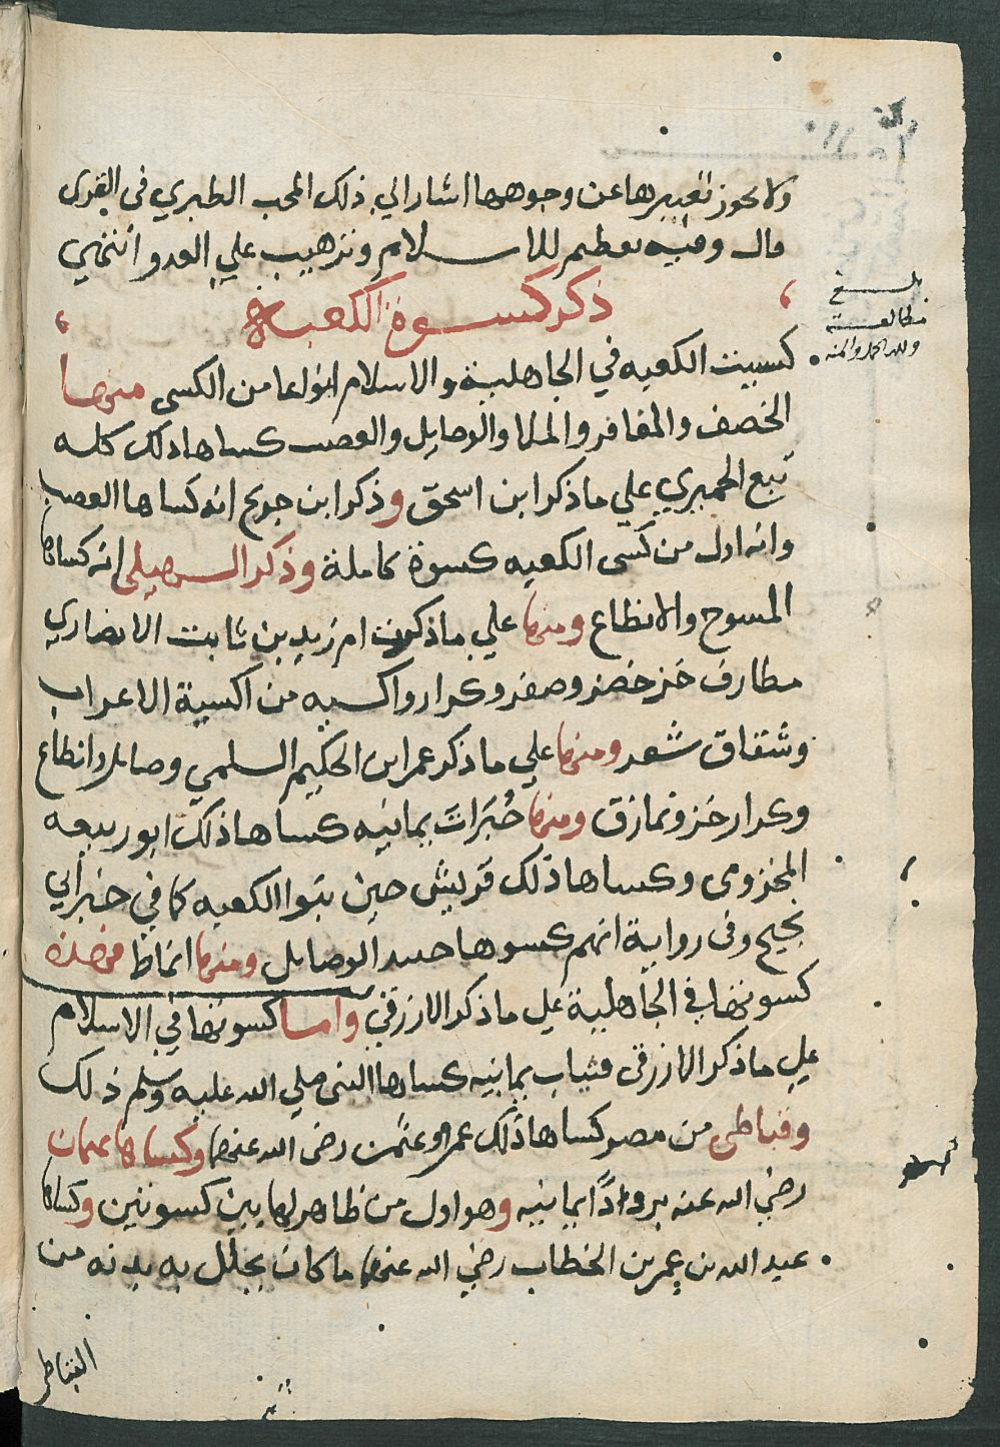 ولا يجوز تغييرها عن وجوهها اشار الي ذلك المحب الطبري في القرى
قال وفيه تعظيم للاسلام وترهيب علي العدو انتهي
ذكر كسوة الكعبة
بلغ
مطالعة
ولله الحمد والمنه
كسيت الكعبه في الجاهلية والاسلام انواعا من الكسى منها
الخصف والمغافر والملا والوصايل والعصب كساها ذلك كله
تبع الحميري علي ما ذكر ابن اسحق وذكر ابن جريج انه كساها العصب
وانه اول من كسى الكعبه كسوة كاملة وذكر السهيلى انه كساها
المسوح والانطاع ومنها علي ما ذكرت ام زيد بن ثابت الانصاري
مطارف خز خضر وصفر وكرار واكسيه من اكسية الاعراب
وشقاق شعر ومنها علي ما ذكر عمر ابن الحكيم السلمي وصايل وانطاع
وكرار خز ونمارق ومنها حُبَراتَ يمانيه كساها ذلك ابو ربيعه
المخزومى وكساها ذلك قريش حين بنوا الكعبه كما في خبر ابي
نجيح وفى رواية انهم كسوها حينيد الوصايل ومنها انماط فهذه
كسوتها في الجاهلية علي ما ذكر الازرقي واما كسوتها في الاسلام
علي ما ذكر الازرقى فثياب يمانيه كساها النبى صلي الله عليه وسلم ذلك
وقباطى من مصر كساها ذلك عمر وعثمن رضى الله عنهما وكساها عثمان
رضي الله عنه برودًا يمانيه وهو اول من ظاهر لها بين كسوتين وكساها
عبد الله بن عمر بن الخطاب رضي الله عنهما ما كان يجلل به بدنه من
القباطى